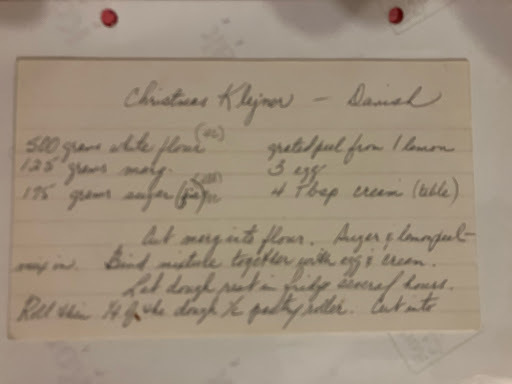 Christmas Klejner - Danish
500 grams white flour
125 grams marg.
175 grams sugar
grated peel from 1 lemon
3 egg
4 Tbsp cream (table)
Cut marg into flour. Sugar & lemon peel -
mix in. Bind mixture together with egg & cream.
Let dough rest in fridge several hours.
Roll thin 1/4 of the dough pastry roller. Cut into